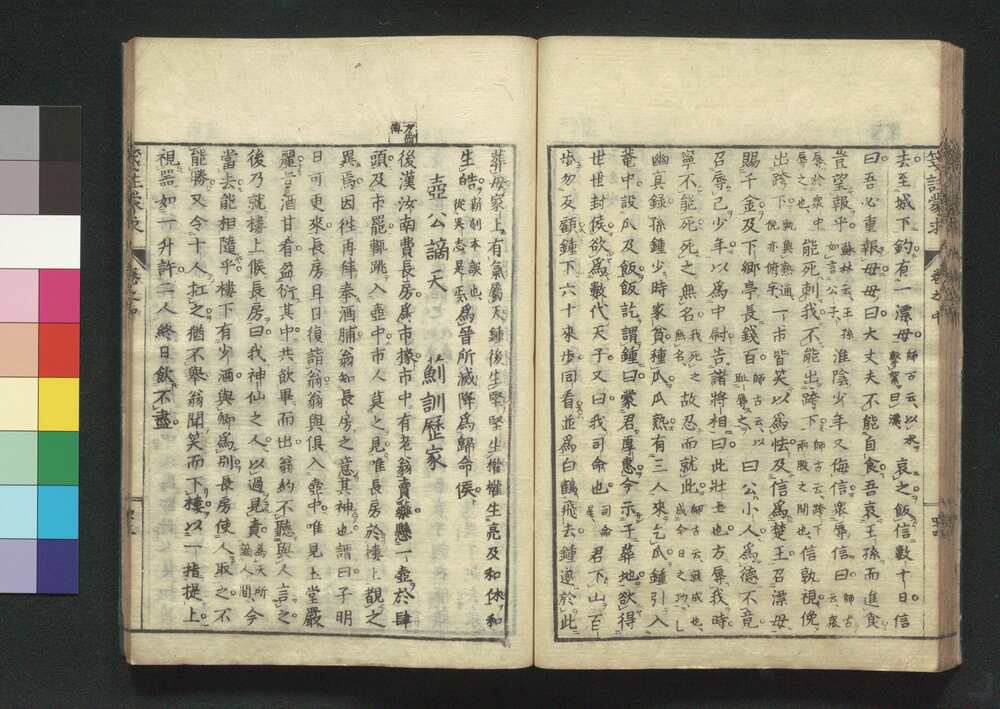 去至城下釣有一漂母師古云以水擊絮曰漂哀之飯信數十日信
曰吾必重報母母曰大丈夫不能自食吾哀王孫而進食
豈望報乎蘇林云王孫如言公子淮陰少年又侮信衆辱信曰師古云衆辱於衆中
辱之也能死刺我不能出跨下師古云跨下兩股之間也信孰視俛
出跨下孰與熟通俛亦俯字一市皆笑以爲怯及信爲楚王召漂母
賜千金及下鄉亭長錢百師古云以恥辱之曰公小人爲德不竟
召辱己少年以爲中尉告諸將相曰此壯士也方辱我時
寧不能死死之無名我死之無名故忍而就此師古云就成也成今日之功
幽眞録孫鍾少時家貧種瓜瓜熟有三人來乞瓜鍾引入
菴中設瓜及飯飯訖謂鍾曰蒙君厚惠今示子葬地欲得
世世封侯欲爲數代天子又曰我司命也司命君下山百
步勿反顧鍾下六十來步回看並爲白鶴飛去鍾遂於此
葬母冢上有氣屬天鍾後生堅堅生權權生亮及和休和
生皓從吳志是正爲晉所滅降爲歸命侯
壺公謫天 薊訓歷家
方術傳
後漢汝南費長房爲市掾市中有老翁賣藥懸一壺於肆
頭及市罷輙跳入壺中市人莫之見唯長房於樓上覩之
異焉因往再拜奉酒脯翁知長房之意其神也謂曰子明
日可更來長房旦日復詣翁翁與俱入壺中唯見玉堂嚴
麗旨酒甘肴盈衍其中共飲畢而出翁約不聽與人言之
後乃就樓上候長房曰我神仙之人以過見責爲天所謫人間今
當去能相隨乎樓下有少酒與卿爲別長房使人取之不
能勝又令十人扛之猶不舉翁聞笑而下樓以一指提上
視器如一升許二人終日飲不盡